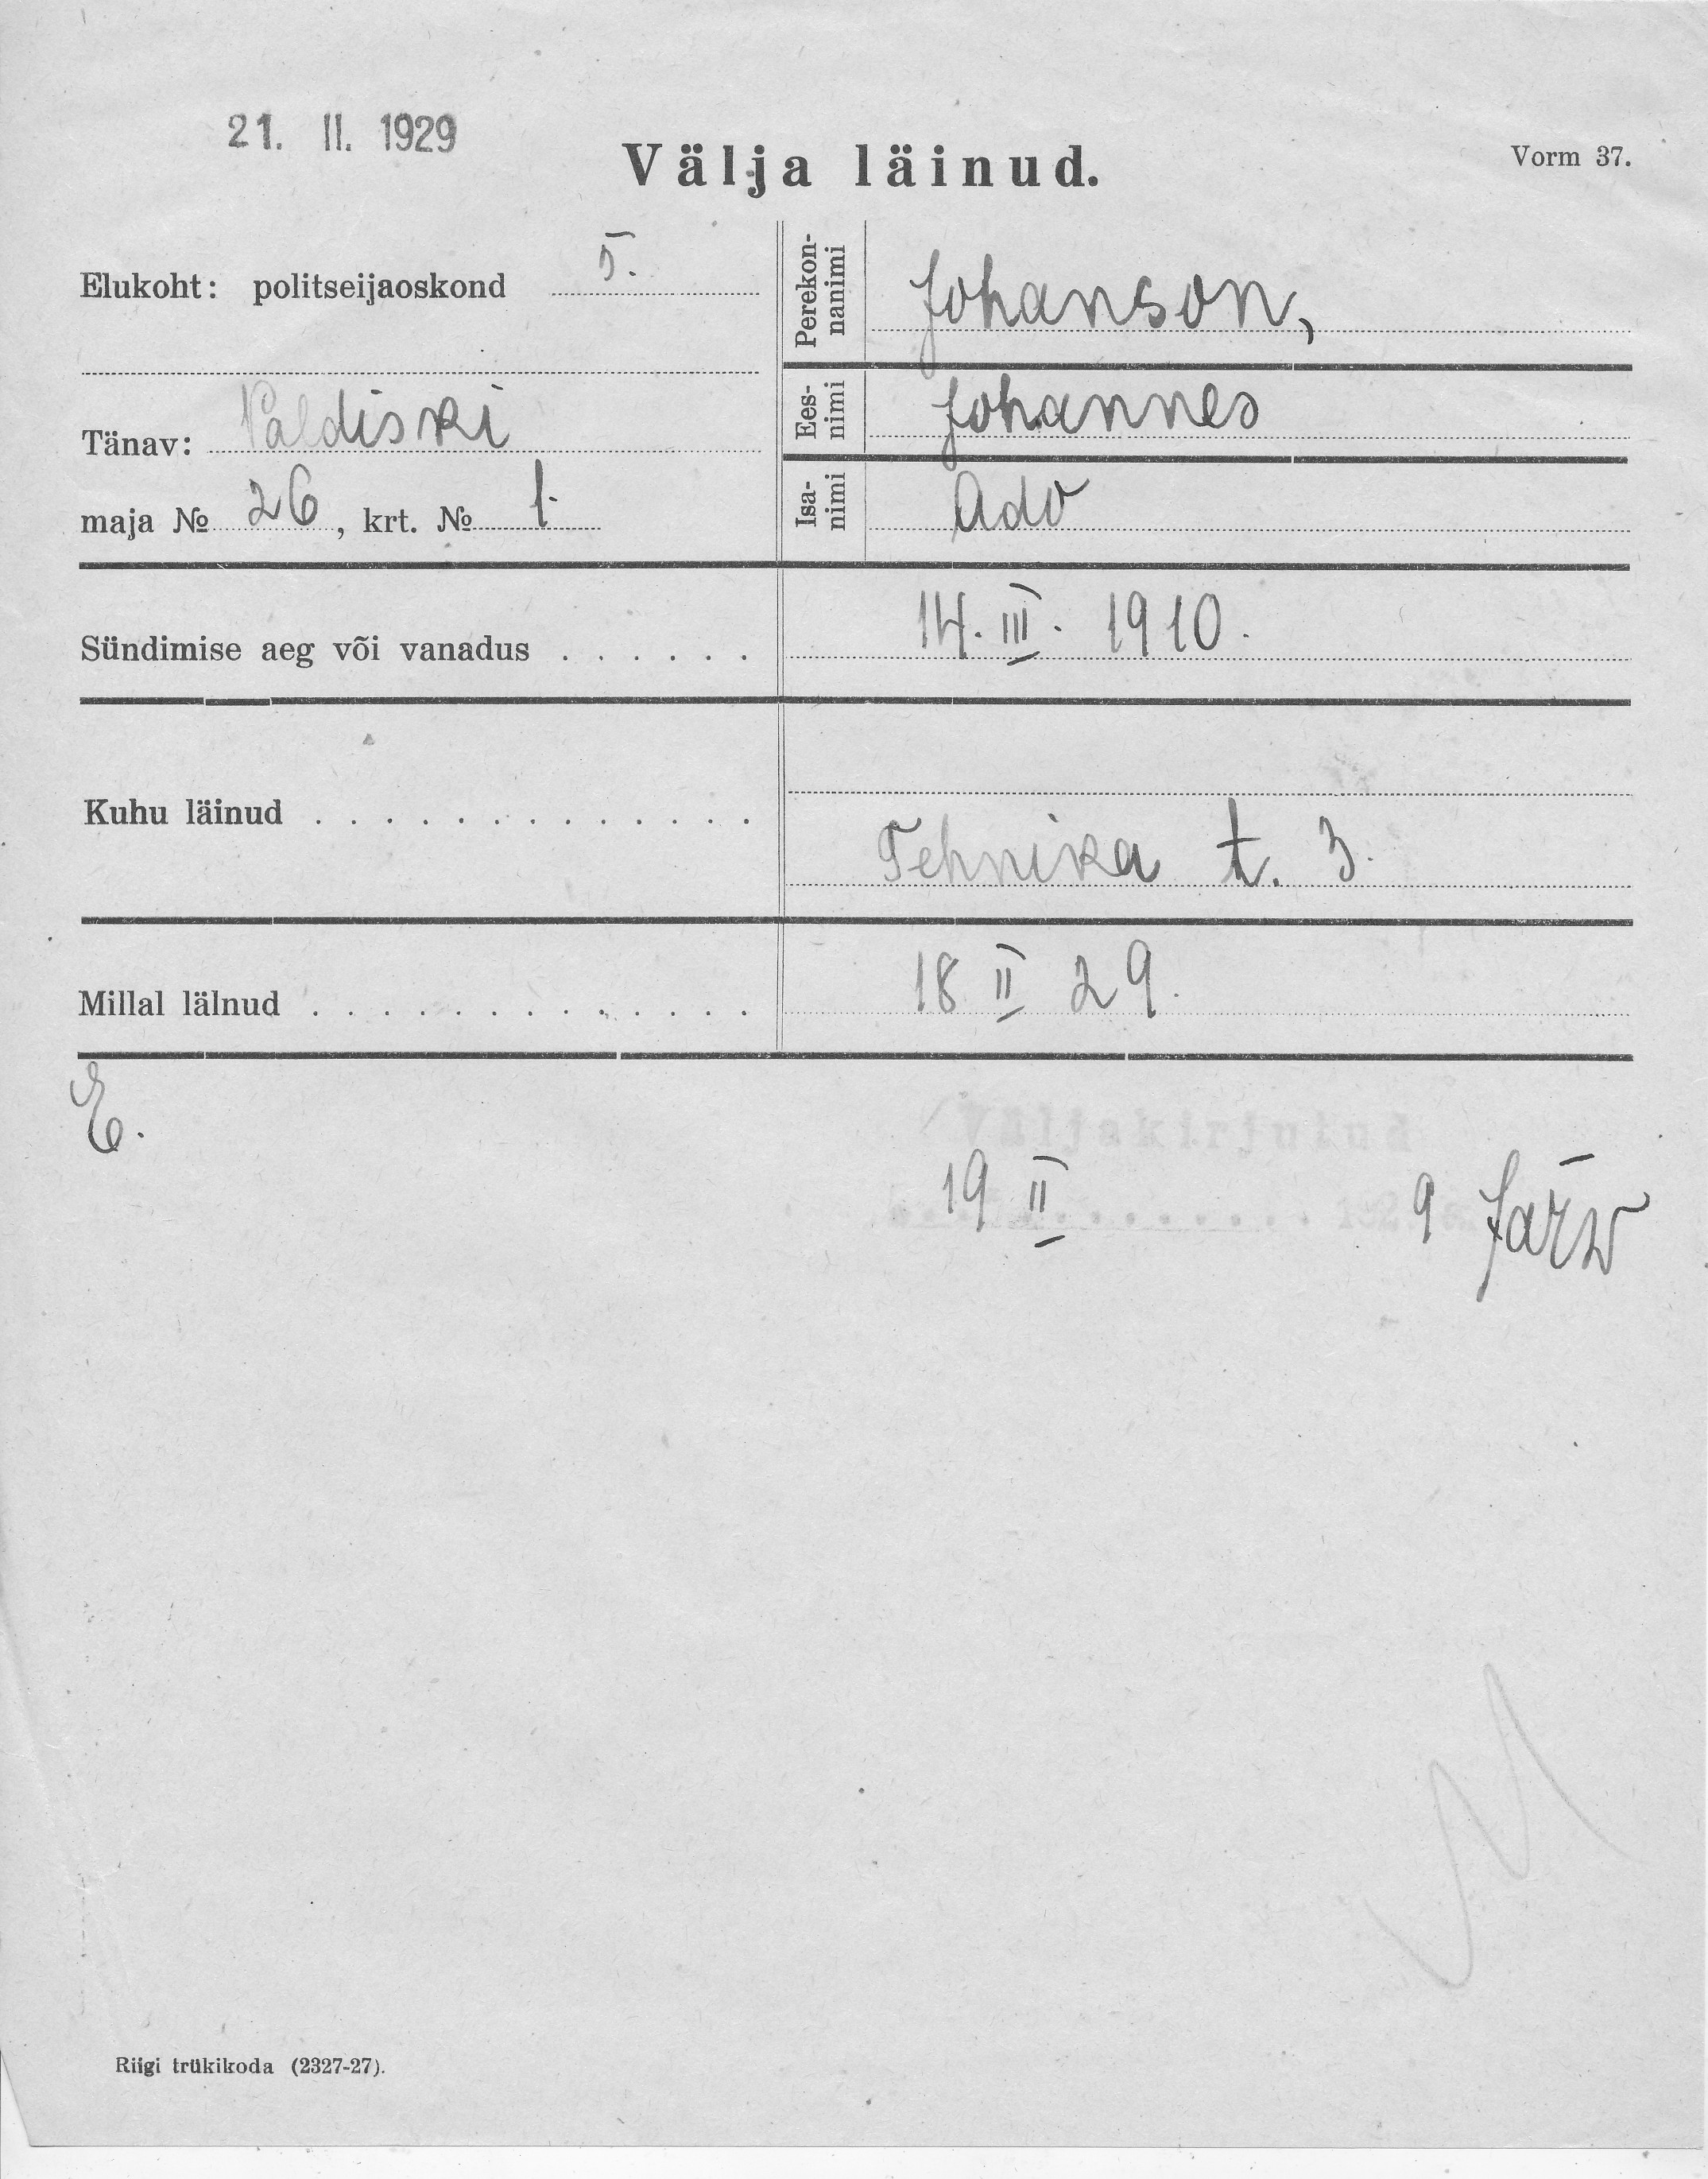 21. II. 1929
Välja läinud.
Vorm 37.
Elukoht: politseijaoskond 5.
Tänav: Paldiski
maja № 26, krt. № 1.
Perekon-
nanimi
Johanson,
Ees-
nimi
Johannes
Isa-
nimi
Ado
Sündimise aeg või vanadus . . . . . . 14. III. 1910.
Kuhu läinud . . . . . . . . . . . . .
Tehnika t. 3.
Millal lälnud . . . . . . . . . . . . . 18 II 29.
E.
Väljakirjutud
19 II 1929 a. Järw
Riigi trükikoda (2327-27).